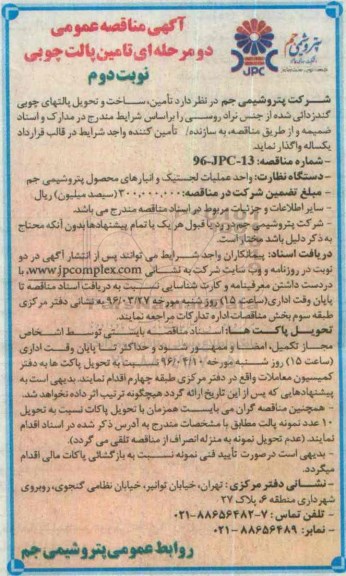 آگهی مناقصه عمومی
دو مرحله ای تامین پالت چوبی
نوبت دوم
پتروشیمی جم
JPC
شرکت پتروشیمی جم در نظر دارد تأمین، ساخت و تحویل پالتهای چوبی
گندزدائی شده از جنس نراد روسی را براساس شرایط مندرج در مدارک و اسناد
ضمیمه و از طریق مناقصه، به سازنده/ تأمین کننده واجد شرایط در قالب قرارداد
یکساله واگذار نماید.
- شماره مناقصه: 96-JPC-13
- دستگاه نظارت: واحد عملیات لجستیک و انبارهای محصول پتروشیمی جم
- مبلغ تضمین شرکت در مناقصه: ۳۰۰,۰۰۰,۰۰۰ (سیصد میلیون) ریال
- سایر اطلاعات و جزئیات مربوط در اسناد مناقصه مندرج می باشد.
- شرکت پتروشیمی جم در رد یا قبول هر یک یا تمام پیشنهادها بدون آنکه محتاج
به ذکر دلیل باشد مختار است.
دریافت اسناد: پیمانکاران واجد شرایط می توانند پس از انتشار آگهی در دو
نوبت در روزنامه و وب سایت شرکت به نشانی www.jpcomplex.com، با
در دست داشتن معرفینامه و کارت شناسایی نسبت به دریافت اسناد مناقصه تا
پایان وقت اداری (ساعت ۱۵) روز شنبه مورخه ۹۶/۰۳/۲۷ به نشانی دفتر مرکزی
طبقه سوم بخش مناقصات اداره تدارکات مراجعه نمایند.
تحویل پاکت ها: اسناد مناقصه بایستی توسط اشخاص
مجاز تکمیل، امضا و ممهور شود و حداکثر تا پایان وقت اداری
(ساعت ۱۵) روز شنبه مورخه ۹۶/۰۴/۱۰ نسبت به تحویل پاکت ها به دفتر
کمیسیون معاملات واقع در دفتر مرکزی طبقه چهارم اقدام نمایند. بدیهی است به
پیشنهادهایی که پس از این تاریخ ارائه گردد هیچگونه ترتیب اثر داده نخواهد شد.
- همچنین مناقصه گران می بایست همزمان با تحویل پاکات نسبت به تحویل
۱۰ عدد نمونه پالت مطابق با مشخصات مندرج به آدرس ذکر شده در اسناد اقدام
نمایند. (عدم تحویل نمونه به منزله انصراف از مناقصه تلقی می گردد).
- بدیهی است در صورت تأیید فنی نمونه نسبت به بازگشائی پاکات مالی اقدام
میگردد.
- نشانی دفتر مرکزی: تهران، خیابان توانیر، خیابان نظامی گنجوی، روبروی
شهرداری منطقه ۶، پلاک ۲۷
- تلفن تماس: ۷-۸۸۶۵۶۴۸۲-۰۲۱
- نمابر: ۸۸۶۵۶۴۸۹ -۰۲۱
روابط عمومی پتروشیمی جم